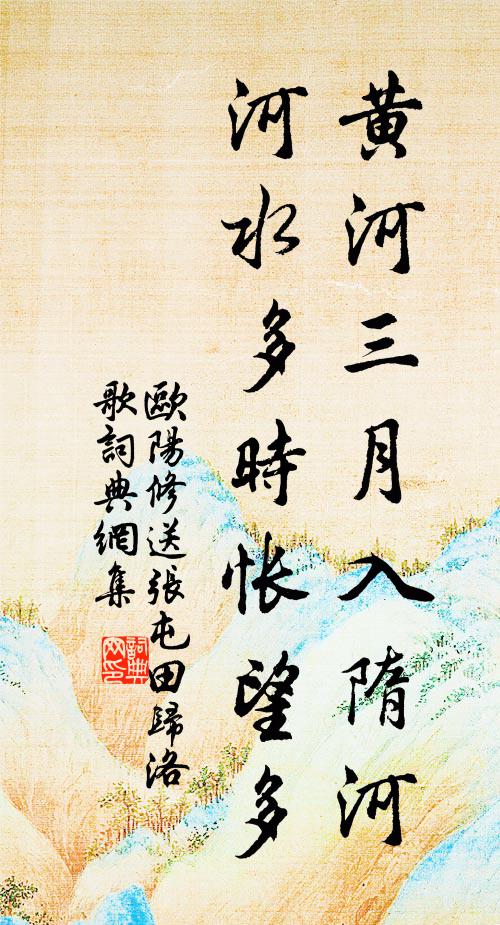 黃河三月入隋河
河水多時悵望多
歐陽修送張屯田歸洛
歌詞典網集
詞典